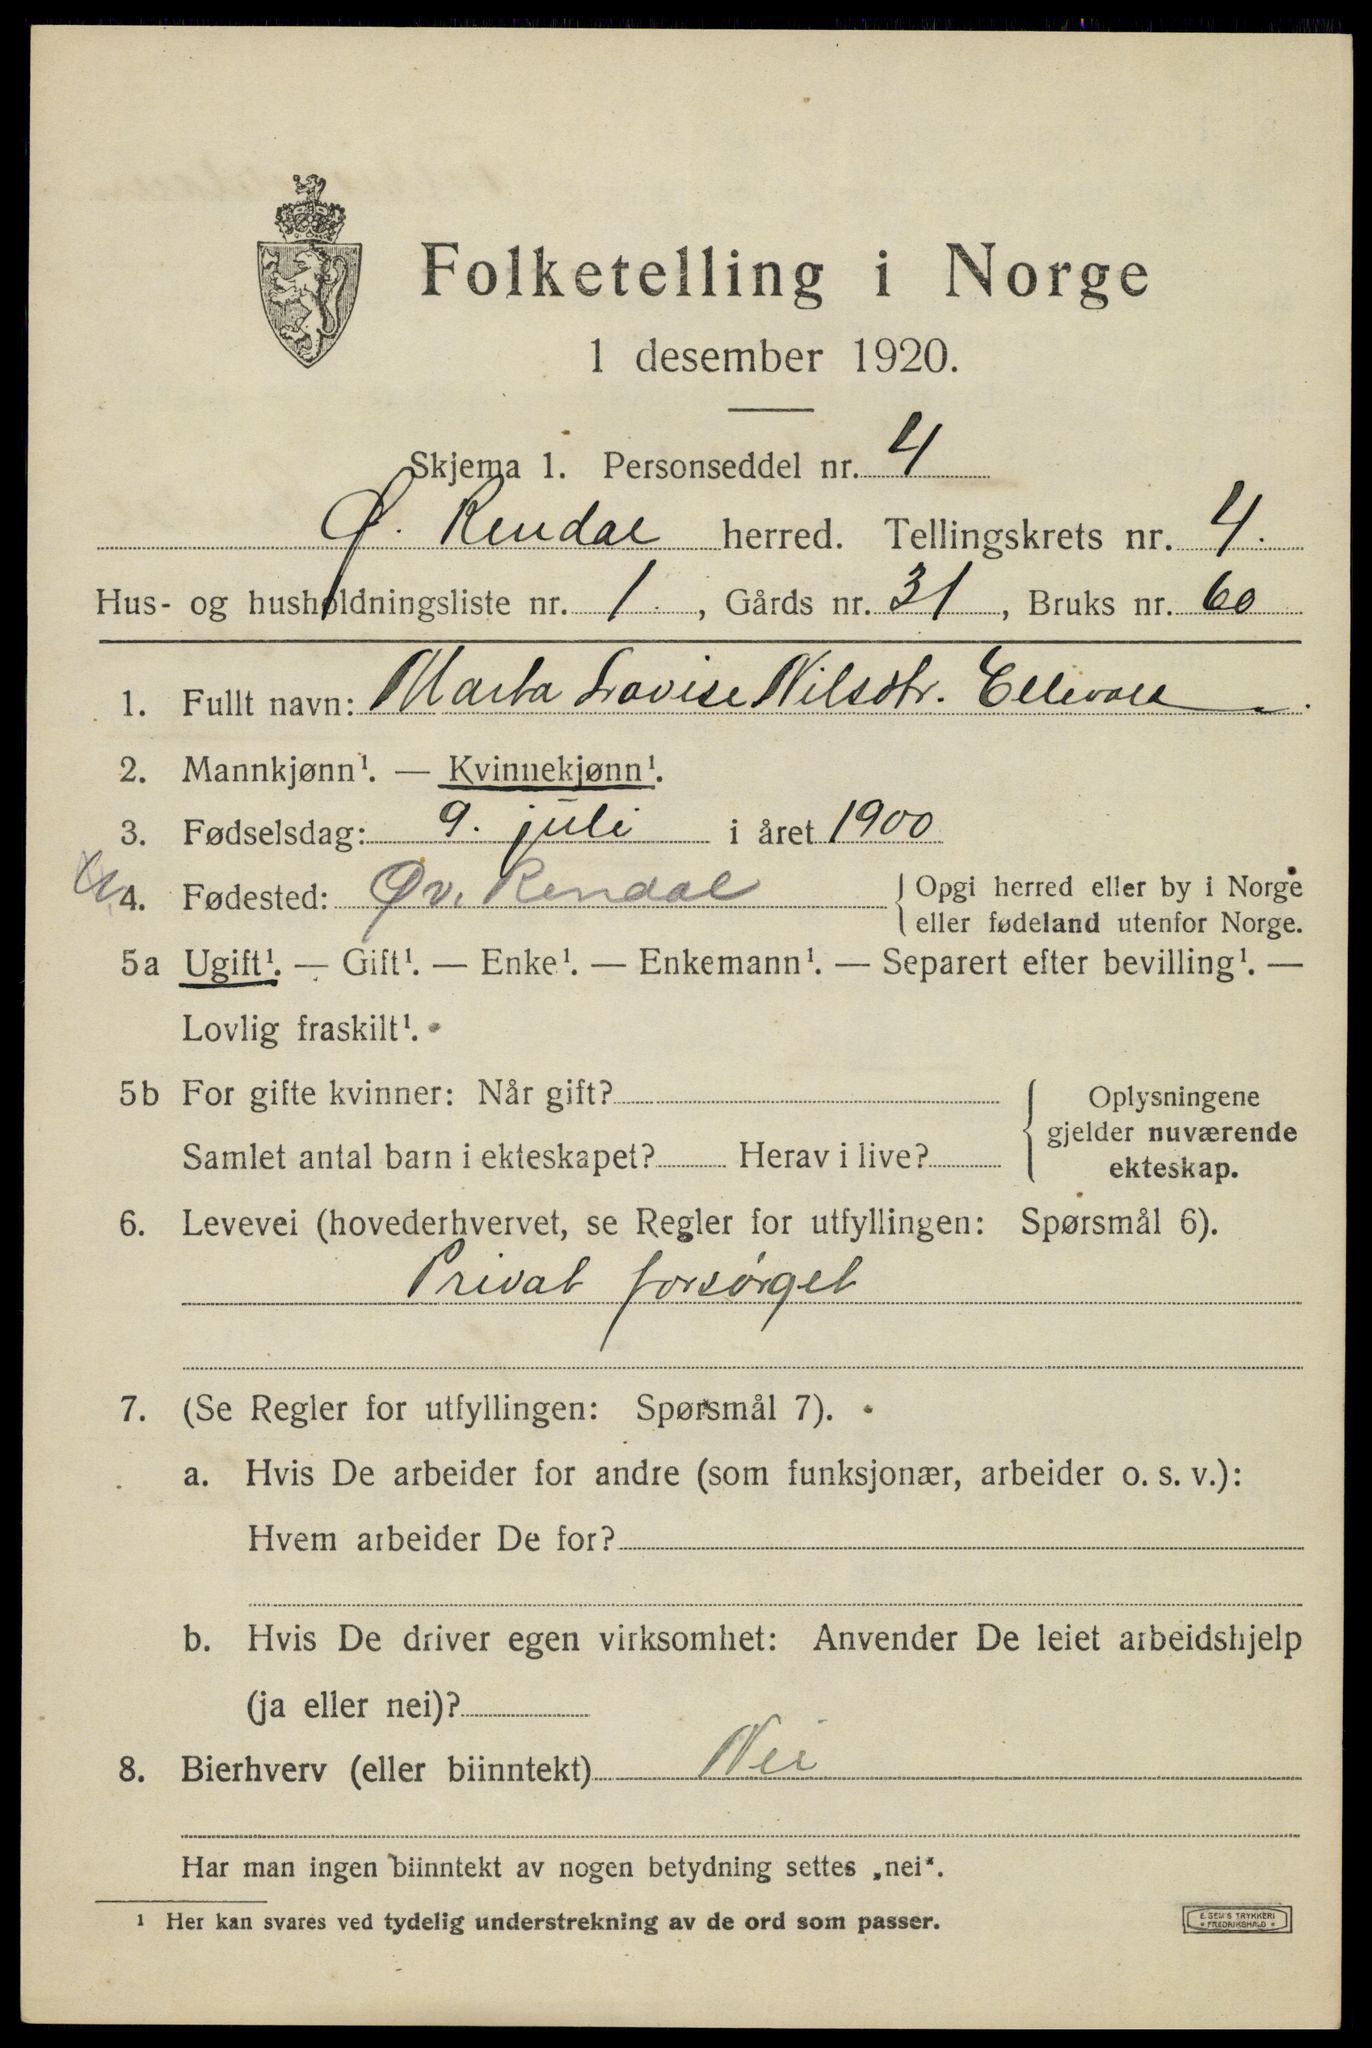 Folketelling i Norge
1 desember 1920.
Skjema 1. Personseddel nr. 4
Ø. Rendal herred. Tellingskrets nr. 4.
Hus- og husholdningsliste nr. 1., Gårds nr. 31, Bruks nr. 60
1. Fullt navn: Marta Lovise Nilsdtr. Ellevold
2. Mannkjønn¹. — Kvinnekjønn¹.
3. Fødselsdag: 9. juli i året 1900
4. Fødested: Øv. Rendal { Opgi herred eller by i Norge
eller fødeland utenfor Norge.
5a Ugift¹. — Gift¹. — Enke¹. — Enkemann¹. — Separert efter bevilling¹. —
Lovlig fraskilt¹.
5b For gifte kvinner: Når gift?
Samlet antal barn i ekteskapet? Herav i live?
Oplysningene
gjelder nuværende
ekteskap.
6. Levevei (hovederhvervet, se Regler for utfyllingen: Spørsmål 6).
Privat forsørget
7. (Se Regler for utfyllingen: Spørsmål 7).
a. Hvis De arbeider for andre (som funksjonær, arbeider o. s. v.):
Hvem arbeider De for?
b. Hvis De driver egen virksomhet: Anvender De leiet arbeidshjelp
(ja eller nei)?
8. Bierhverv (eller biinntekt) Nei
Har man ingen biinntekt av nogen betydning settes „nei".
¹ Her kan svares ved tydelig understrekning av de ord som passer.
E. SEM'S TRYKKERI
FREDRIKSHALD